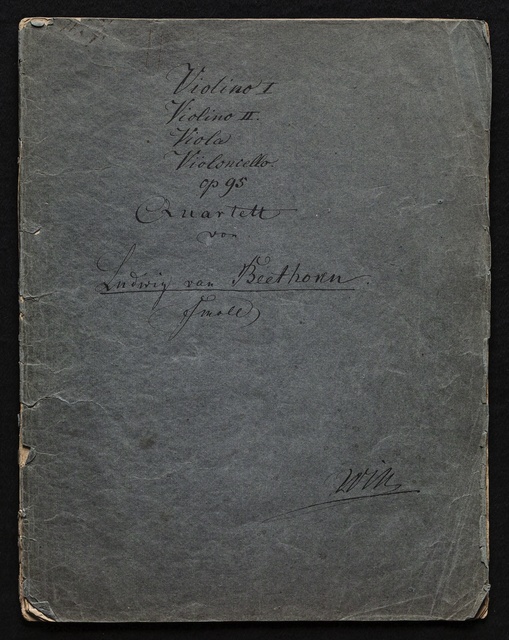 Violino I.
Violino II.
Viola
Violoncello.
op 95
Quartett
von
Ludwig van Beethoven.
Fmoll